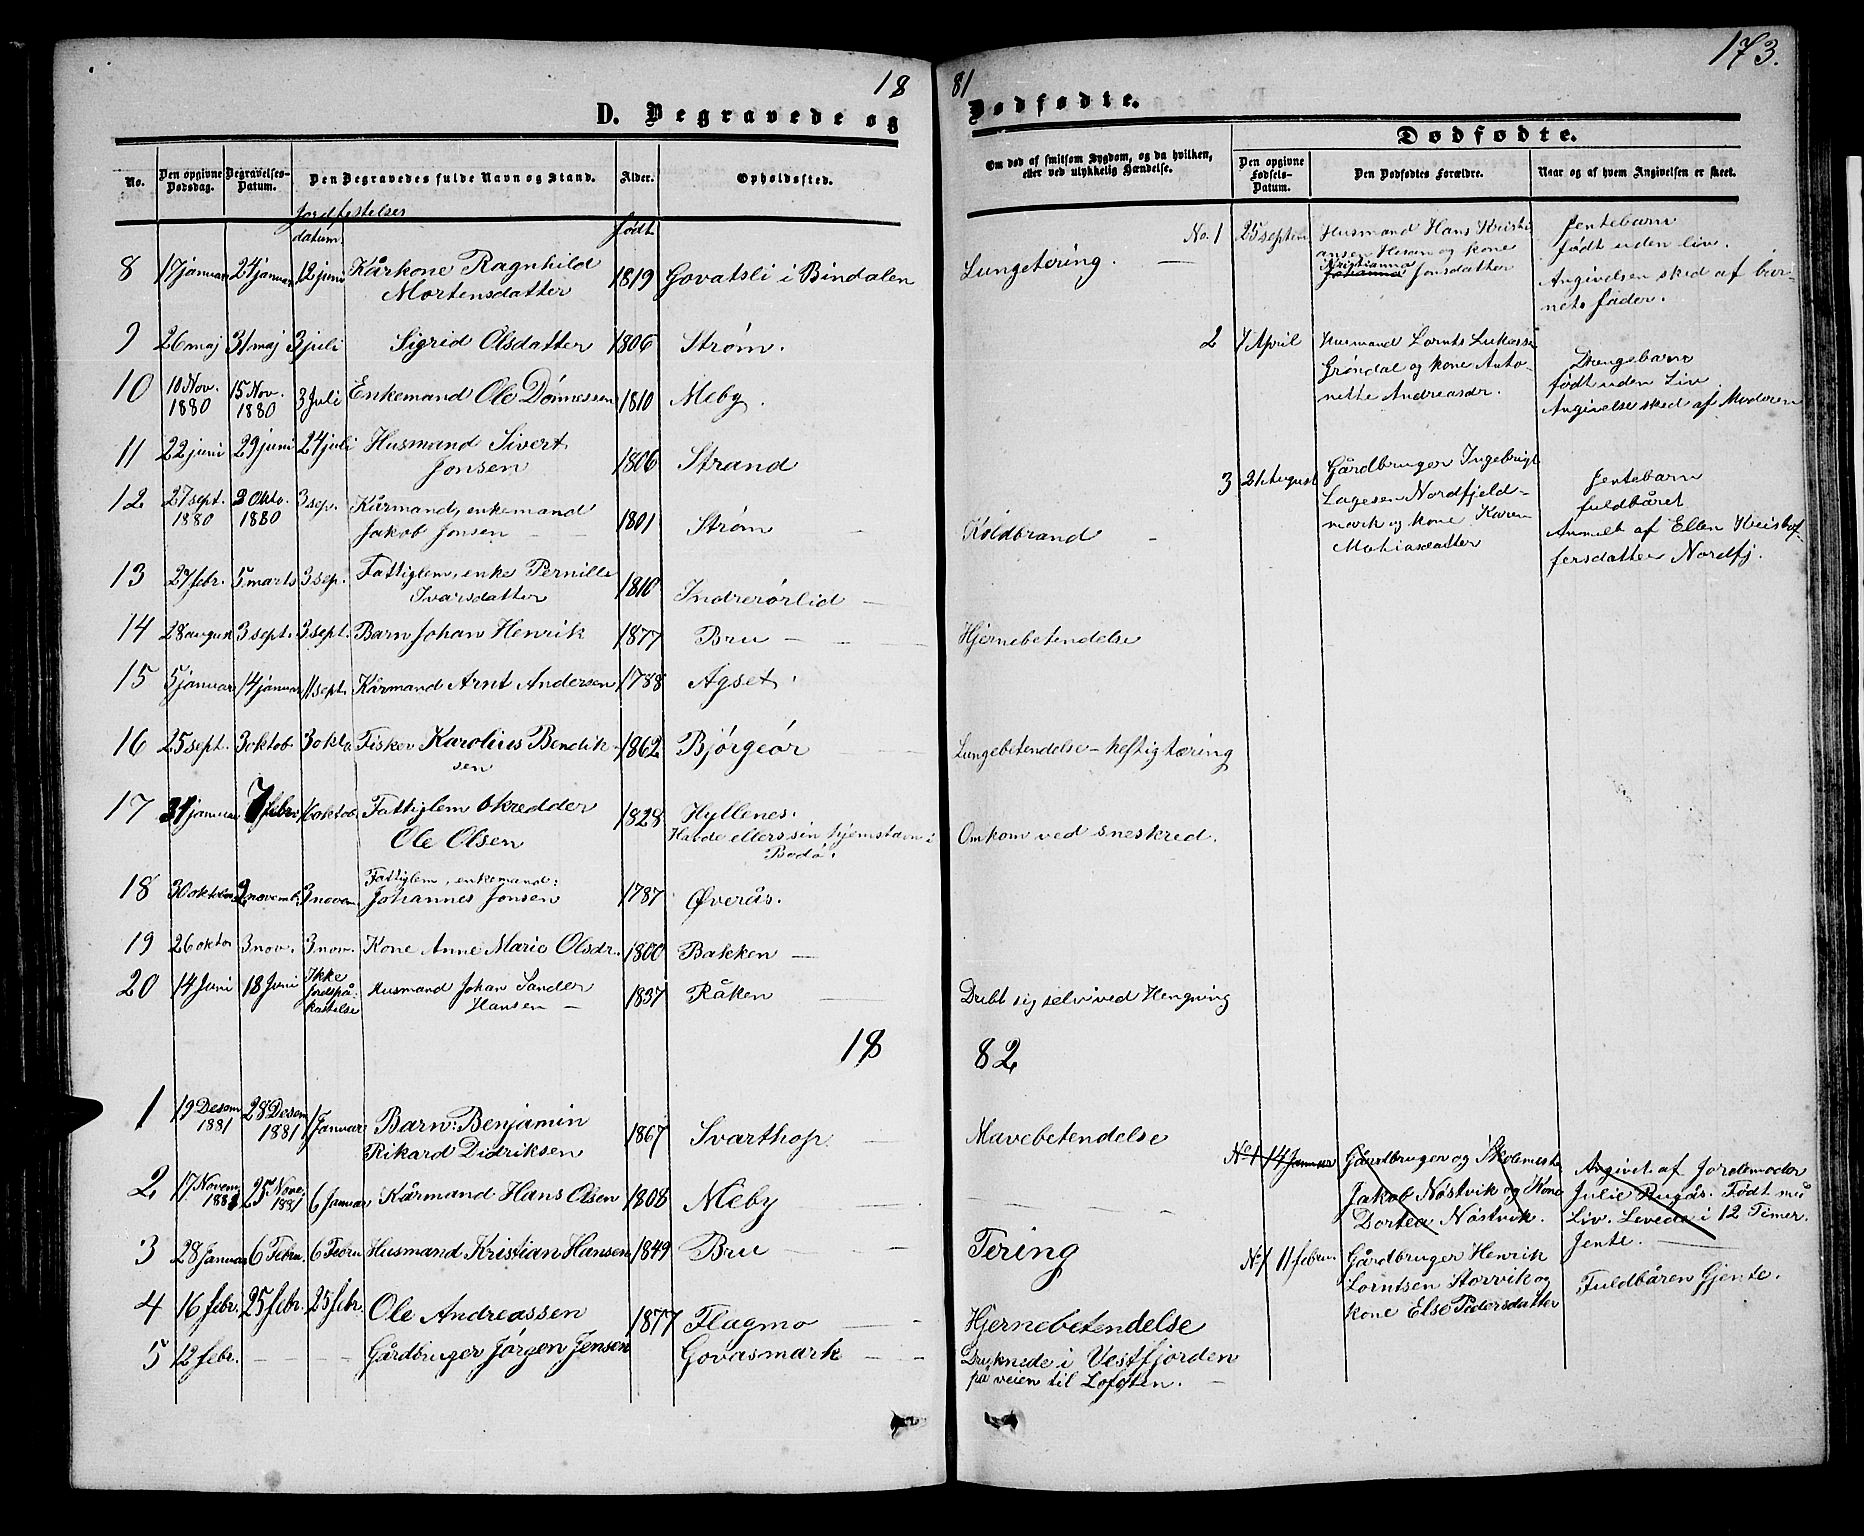 173.
18 81
D. Begravede og Dødfødte.
Dødfødte.
No.
Den opgivne Dødsdag.
Begravelses-Datum.
Den Begravedes fulde Navn og Stand.
Alder.
Opholdssted.
Om død af smitsom Sygdom, og da hvilken,
eller ved ulykkelig Hændelse.
Den opgivne Fødsels-Datum.
Den Dødfødtes Forældre.
Naar og af hvem Angivelsen er skeet.
Jordfestelses
datum.
født
8 17 januar 24 januar 12 juni Kårkone Ragnhild
Mortensdatter 1819 Govatsli i Bindalen Lungetæring.
9 26 maj 31 maj 3 juli Sigrid Olsdatter 1806 Strøm.
10 10 Nov. 1880 15 Nov. 1880 3 Juli Enkemand Ole Dønnessen 1810 Meby.
11 22 juni 29 juni 24 juli Husmand Sivert
Jonsen 1806 Strand
12 27 sept. 1880 3 Okto. 1880 3 sep. Kårmand, enkemand
Jakob Jonsen 1801 Strøm Koldbrand
13 27 febr. 5 marts 3 sep. Fattiglem, enke Pernille
Ivarsdatter 1810 Indrerørlid
14 28 august 3 sept. 3 sept. Barn Johan Henrik 1877 Bru Hjernebetendelse
15 5 januar 14 januar 11 sept. Kårmand Arnt Andersen 1788 Agset.
16 25 sept. 3 oktob. 3 okto Fisker Karolius Bendik-
sen 1862 Bjørgeør Lungebetendelse - heftig tæring
17 31 januar 7 febr. 16 oktob. Fattiglem Skredder
Ole Olsen 1828 Hyllenes.
Havde ellers sin hjemstavn i
Bodø. Omkom ved sneskred.
18 30 oktober 2 novemb. 3 novem. Fattiglem, enkemand:
Johannes Jonsen 1787 Øverås.
19 26 oktor 3 nov. 3 nov. Kone Anne Marie Olsdr. 1800 Bakken
20 14 Juni 18 Juni Ikke
Jordspå-
kastelse Husmand Johan Sander
Hansen 1837 Råken Drebt sig selv ved Hengning
No. 1 25 septem Husmand Hans Kristi
ansen Hesan og kone
Kristianna
Johanna Jonsdatter
Jentebarn
født uden liv.
Angivelsen sked af bar-
nets fader.
2 7 April Husmand Lornts Lukassen
Grøndal og kone Anto-
nette Andreasdr.
Drengebarn
født uden Liv.
Angivelse sked af Moderen
3 21 August Gårdbruger Ingebrigt
Lagesen Nordfjeld-
mark og kone Karen
Mathiasdatter
Jentebarn
fuldbåret
Anmelt af Ellen Kristof-
fersdatter Nordfj.
18 82
1 19 Desem 1881 28 Desem 1881 1 Januar Barn: Benjamin
Rikard Didriksen 1867 Svarthop Mavebetendelse
2 17 Novem. 1881 25 Nove. 1881 6 Januar Kårmand Hans Olsen 1808 Meby
3 28 Januar 6 Febru 6 Febru Husmand Kristian Hansen 1849 Bru Tering
4 16 febr. 25 febr. 25 febr. Ole Andreassen 1877 Flagmo Hjernebetendelse
5 12 febr. Gårdbruger Jørgen Jensen Govasmark Druknede i Vestfjorden
på veien til Lofoten.
No 1 14 Januar Gårdbruger og Skolemester
Jakob Nøstvik og Kone
Dortea Nøstvik.
Angivet af Jordemoder
Julie Rugås. Født med
Liv. Levede i 12 Timer.
Jente.
No 1 11 febru. Gårdbruger Henrik
Lorntsen Storvik og
kone Else Pedersdatter
Fuldbåren Gjente.